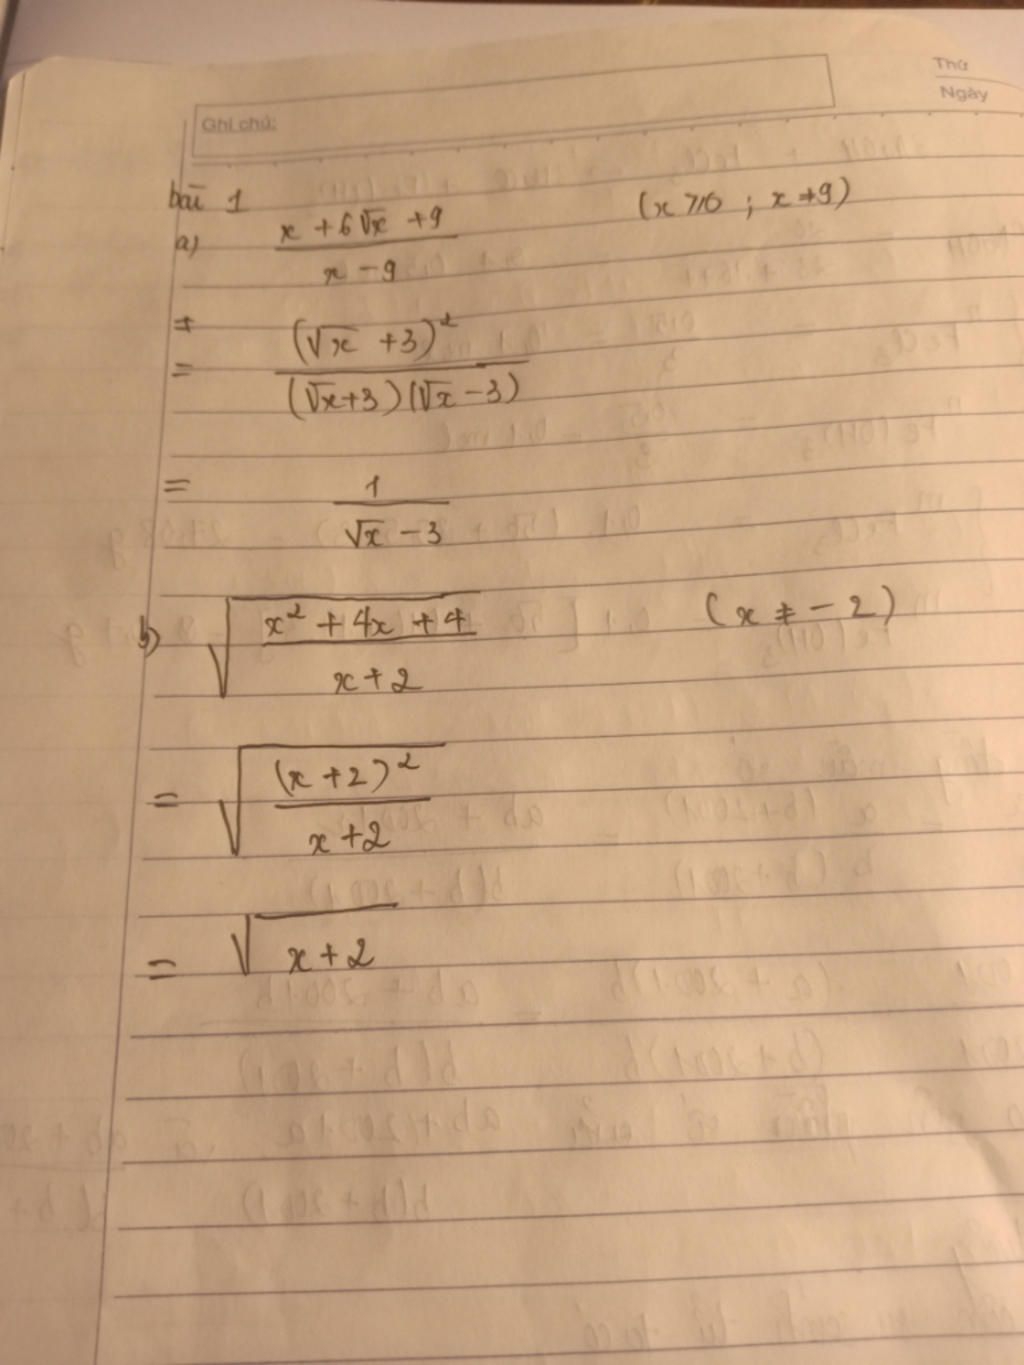 Thứ
Ngày
Ghi chú:
bài 1
a) \frac{x + 6\sqrt{x} + 9}{x - 9} (x ≥ 0 ; x ≠ 9)
= \frac{(\sqrt{x} + 3)^2}{(\sqrt{x} + 3)(\sqrt{x} - 3)}
= \frac{1}{\sqrt{x} - 3}
b) \sqrt{\frac{x^2 + 4x + 4}{x + 2}} (x ≠ - 2)
= \sqrt{\frac{(x + 2)^2}{x + 2}}
= \sqrt{x + 2}